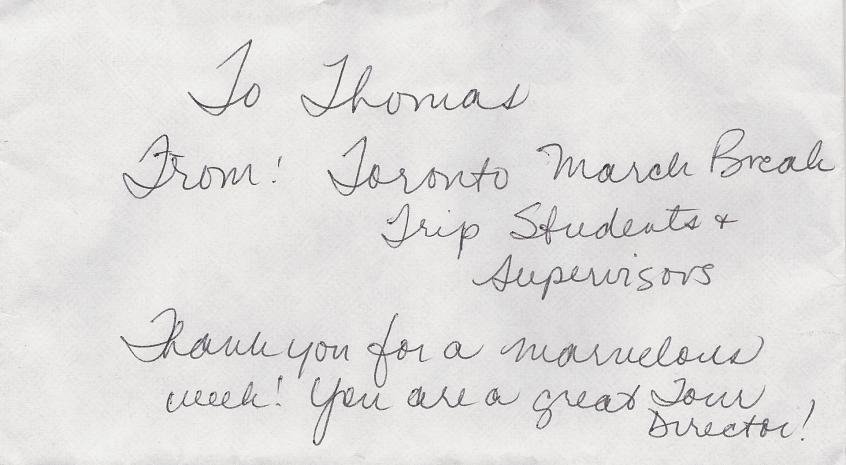 To Thomas
From: Toronto March Break
Trip Students +
Supervisors
Thank you for a marvelous
week! You are a great Tour
Director!